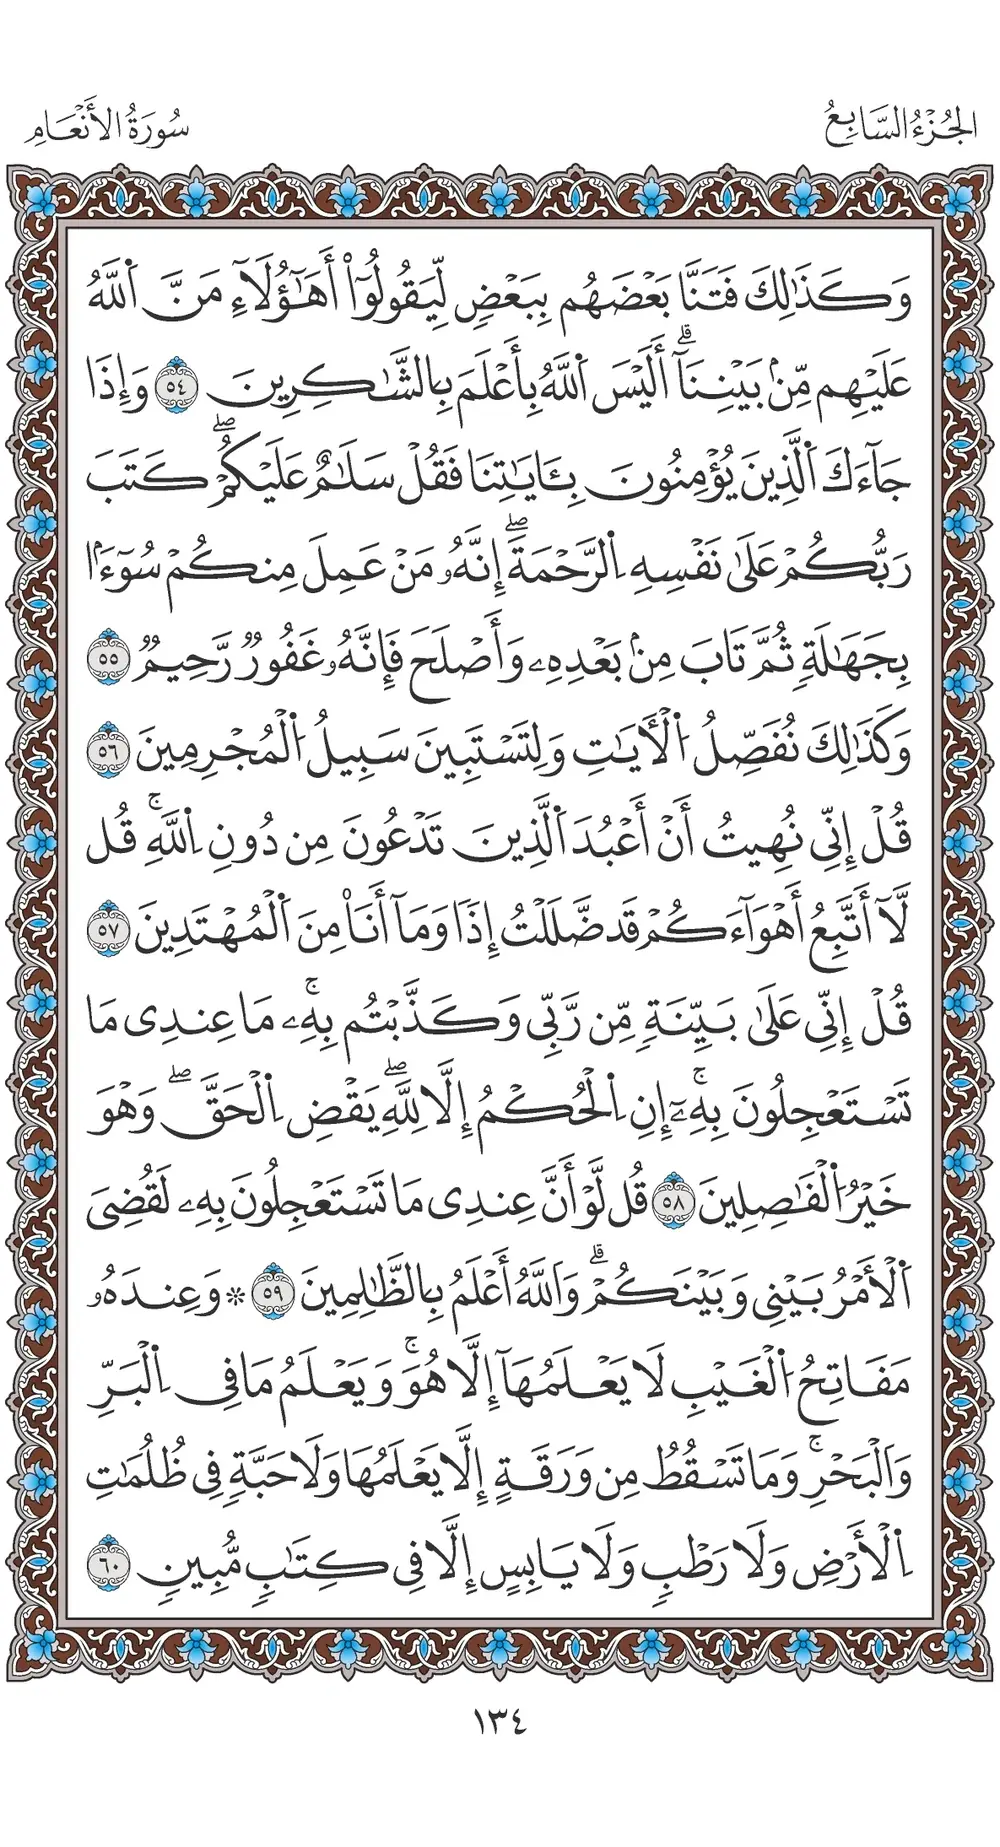 الجُزْءُ السَّابِعُ
سُورَةُ الأَنْعَامِ
وَكَذَٰلِكَ فَتَنَّا بَعْضَهُم بِبَعْضٍ لِّيَقُولُوٓاْ أَهَٰٓؤُلَآءِ مَنَّ اَ۬للَّهُ
عَلَيْهِم مِّنۢ بَيْنِنَآۗ أَلَيْسَ اَ۬للَّهُ بِأَعْلَمَ بِالشَّٰكِرِينَ ٥٤ وَإِذَا
جَآءَكَ اَ۬لَّذِينَ يُؤْمِنُونَ بِـَٔايَٰتِنَا فَقُلْ سَلَٰمٌ عَلَيْكُمْۖ كَتَبَ
رَبُّكُمْ عَلَىٰ نَفْسِهِ اِ۬لرَّحْمَةَۖ إِنَّهُۥ مَنْ عَمِلَ مِنكُمْ سُوٓءَۢا
بِجَهَٰلَةٍ ثُمَّ تَابَ مِنۢ بَعْدِهِۦ وَأَصْلَحَ فَإِنَّهُۥ غَفُورٌ رَّحِيمٌ ٥٥
وَكَذَٰلِكَ نُفَصِّلُ اُ۬لْأٓيَٰتِ وَلِتَسْتَبِينَ سَبِيلُ اُ۬لْمُجْرِمِينَ ٥٦
قُلْ إِنِّي نُهِيتُ أَنْ أَعْبُدَ اَ۬لَّذِينَ تَدْعُونَ مِن دُونِ اِ۬للَّهِۚ قُل
لَّآ أَتَّبِعُ أَهْوَآءَكُمْ قَد ضَّلَلْتُ إِذًا وَمَآ أَنَا۠ مِنَ اَ۬لْمُهْتَدِينَ ٥٧
قُلْ إِنِّي عَلَىٰ بَيِّنَةٍ مِّن رَّبِّي وَكَذَّبْتُم بِهِۦۚ مَا عِندِي مَا
تَسْتَعْجِلُونَ بِهِۦٓۚ إِنِ اِ۬لْحُكْمُ إِلَّا لِلَّهِۖ يَقْضِ اِ۬لْحَقَّۖ وَهْوَ
خَيْرُ اُ۬لْفَٰصِلِينَ ٥٨ قُل لَّوْ أَنَّ عِندِي مَا تَسْتَعْجِلُونَ بِهِۦ لَقُضِيَ
اَ۬لْأَمْرُ بَيْنِي وَبَيْنَكُمْۗ وَاَللَّهُ أَعْلَمُ بِالظَّٰلِمِينَ ٥٩ ۞ وَعِندَهُۥ
مَفَاتِحُ اُ۬لْغَيْبِ لَا يَعْلَمُهَآ إِلَّا هُوَۚ وَيَعْلَمُ مَا فِي اِ۬لْبَرِّ
وَالْبَحْرِۚ وَمَا تَسْقُطُ مِن وَرَقَةٍ إِلَّا يَعْلَمُهَا وَلَا حَبَّةٍ فِي ظُلُمَٰتِ
اِ۬لْأَرْضِ وَلَا رَطْبٍ وَلَا يَابِسٍ إِلَّا فِي كِتَٰبٍ مُّبِينٍ ٦٠
١٣٤